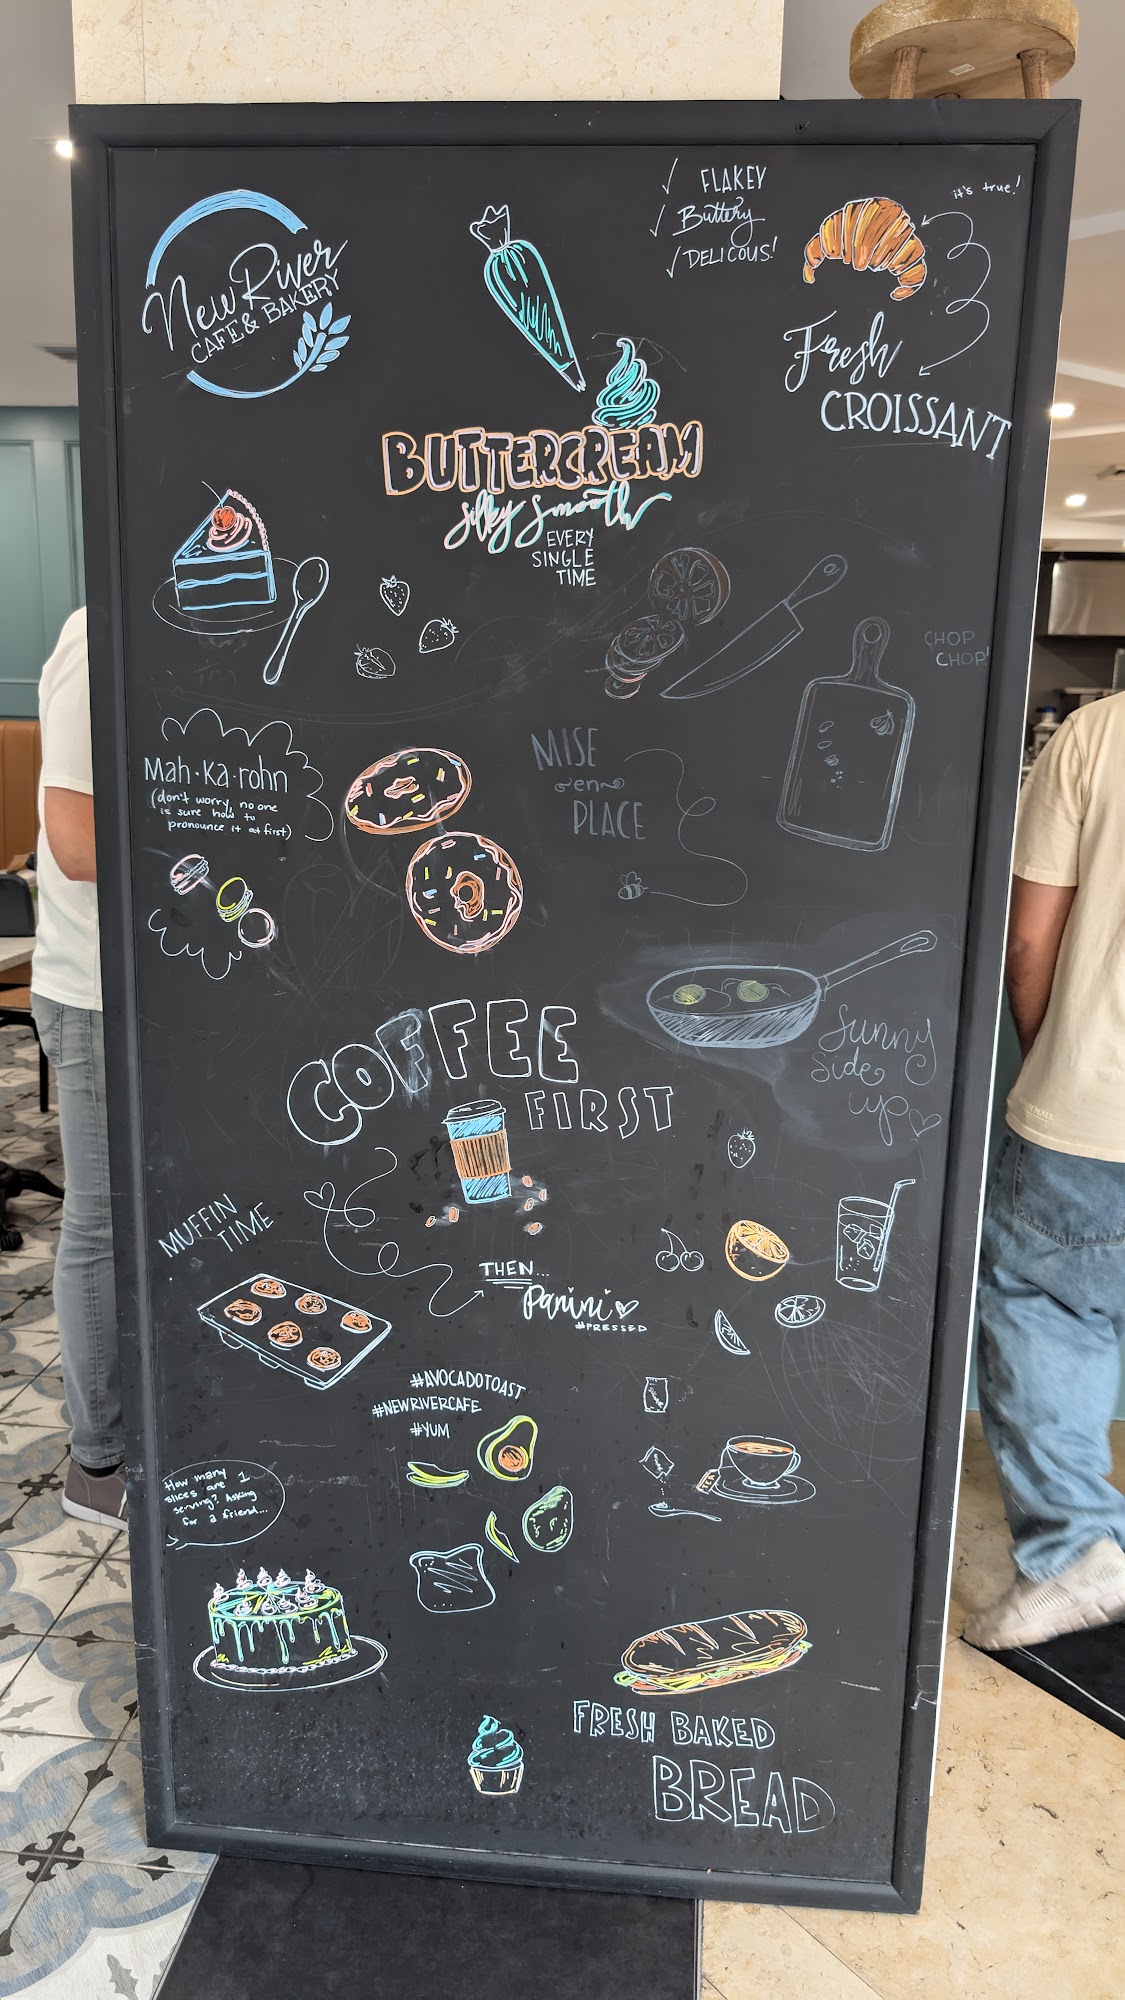 New River
CAFE & BAKERY
✓ FLAKEY
✓ Buttery
✓ DELICOUS!
it's true!
Fresh
CROISSANT
BUTTERCREAM
silky smooth
EVERY
SINGLE
TIME
CHOP
CHOP!
Mah·Ka·rohn
(don't worry, no one
is sure how to
pronounce it at first)
MISE
en
PLACE
Sunny
Side
up
COFFEE
FIRST
MUFFIN
TIME
THEN...
Panini
#PRESSED
#AVOCADOTOAST
#NEWRIVERCAFE
#YUM
TEA
How many
slices are 1
serving? Asking
for a friend...
FRESH BAKED
BREAD